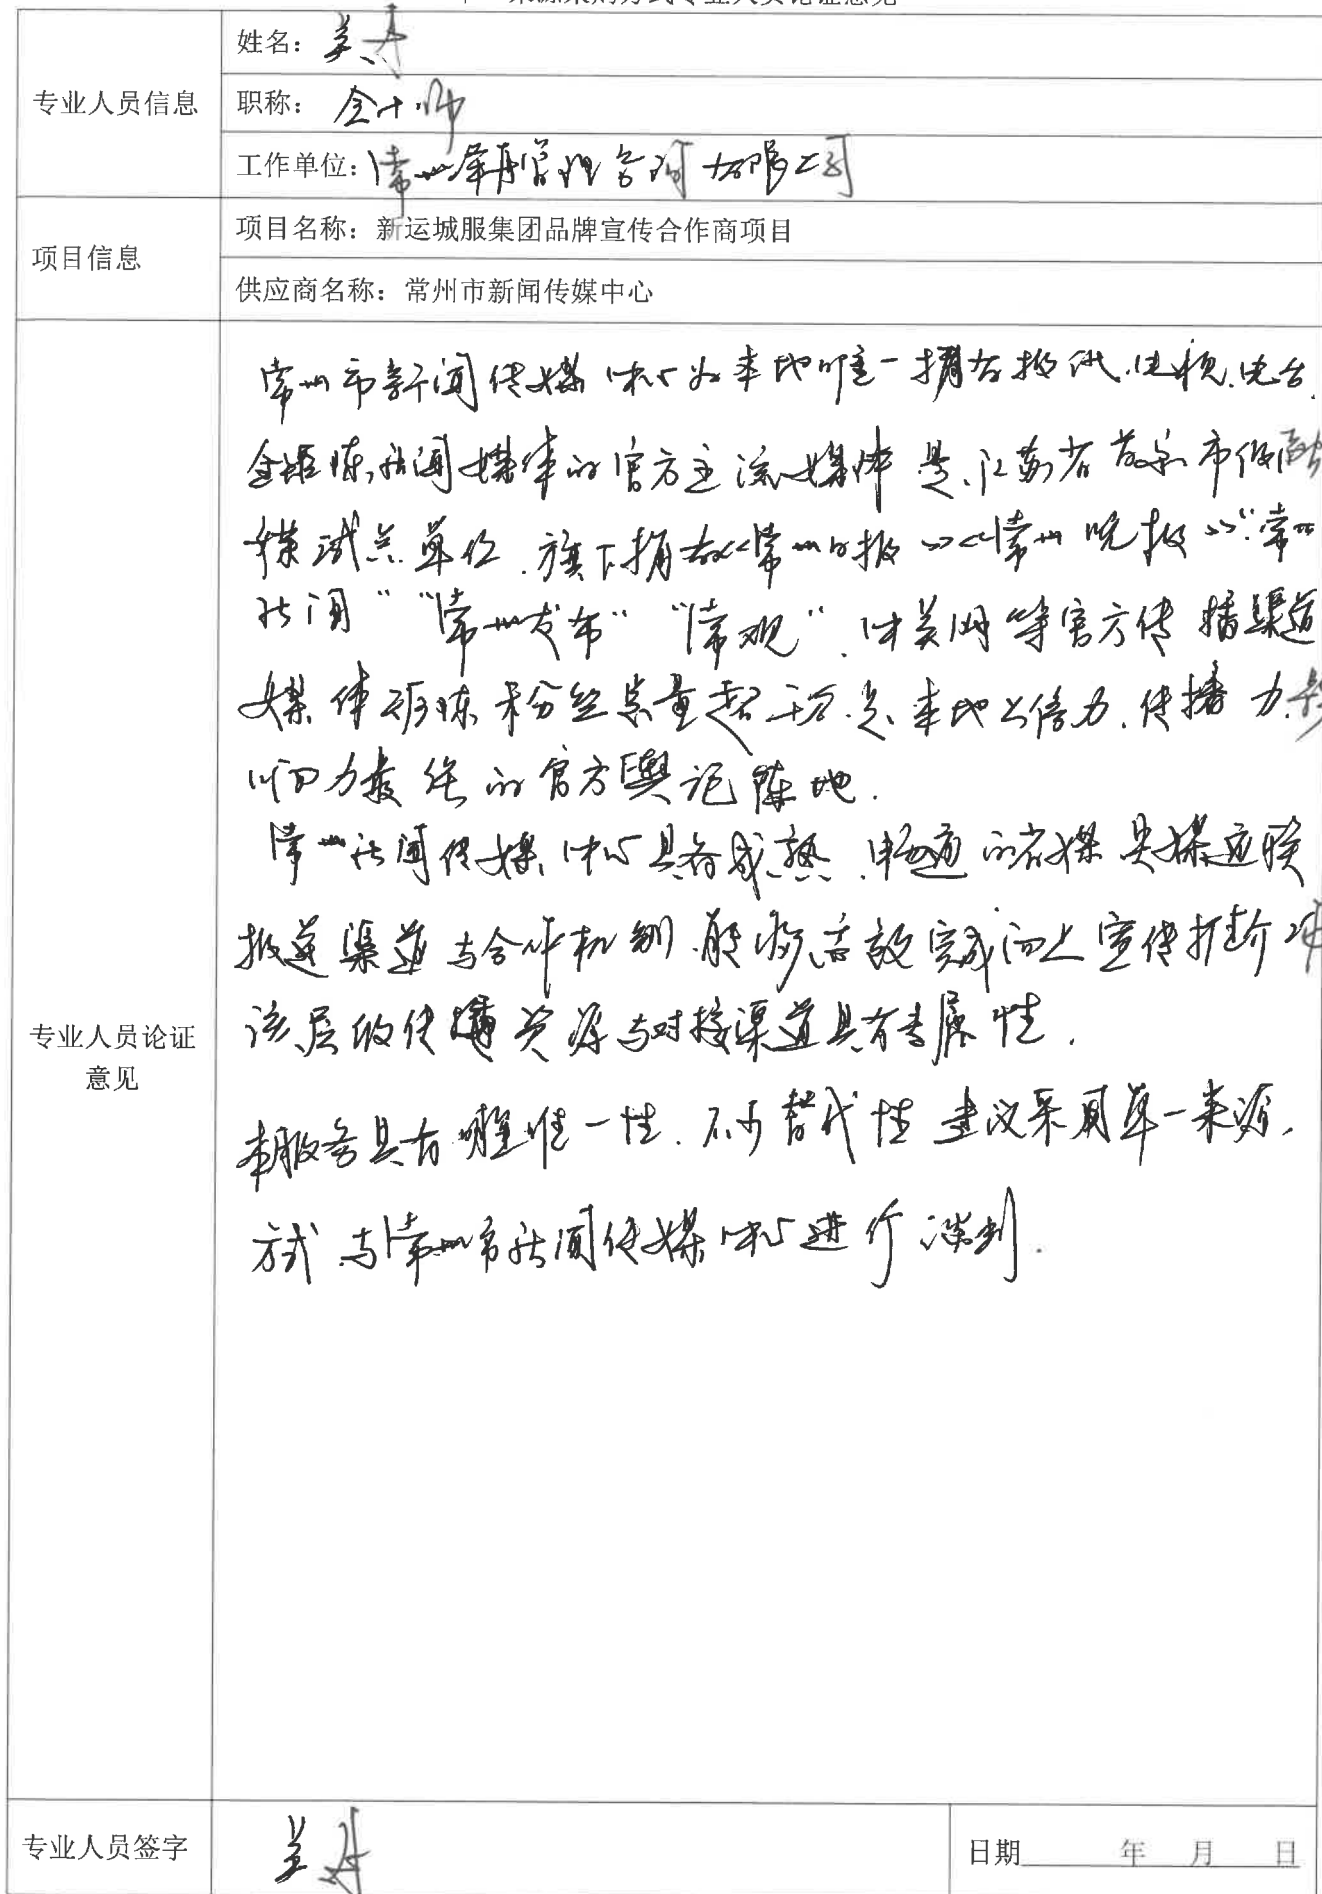 来源采购方式专业人员论证意见
专业人员信息
姓名：
职称：会计师
工作单位：常州 管理咨询有限公司
项目信息
项目名称：新运城服集团品牌宣传合作商项目
供应商名称：常州市新闻传媒中心
专业人员论证
意见
常州市新闻传媒中心为本地唯一拥有报纸、电视、电台、
全矩阵新闻媒体的官方主流媒体 是江苏省首家市级融
媒试点单位.旗下拥有《常州日报》《常州晚报》"常州
新闻""常州发布""常观".中吴网等官方传播渠道
媒体矩阵粉丝总量超千万.是本地公信力.传播力.影
响力最 的官方舆论阵地.
常州新闻传媒中心具备成熟.畅通的省媒央媒 联
报道渠道与合作机制.能 高效完成向上宣传推介
该层级传播资源与对接渠道具有专属性.
本服务具有 唯一性.不可替代性 建议采用单一来源
方式与常州市新闻传媒中心进行谈判.
专业人员签字
日期 年 月 日